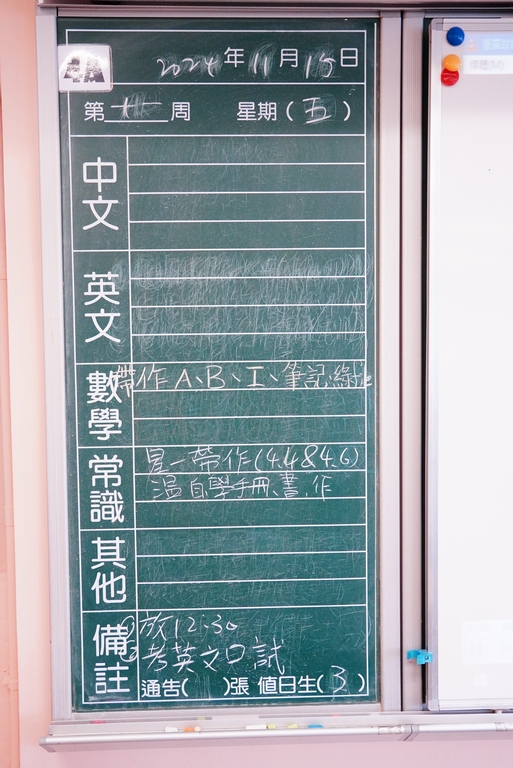 2024 年 11 月 15 日
第 十一 周 星期 ( 五 )
中文
英文
數學
帶作 A、B、工、筆記、綠
常識
星一帶作(4.4&4.6)
溫自學手冊、書、作
其他
備註
① 放12:30
② 考英文口試
通告( )張 值日生( 3 )